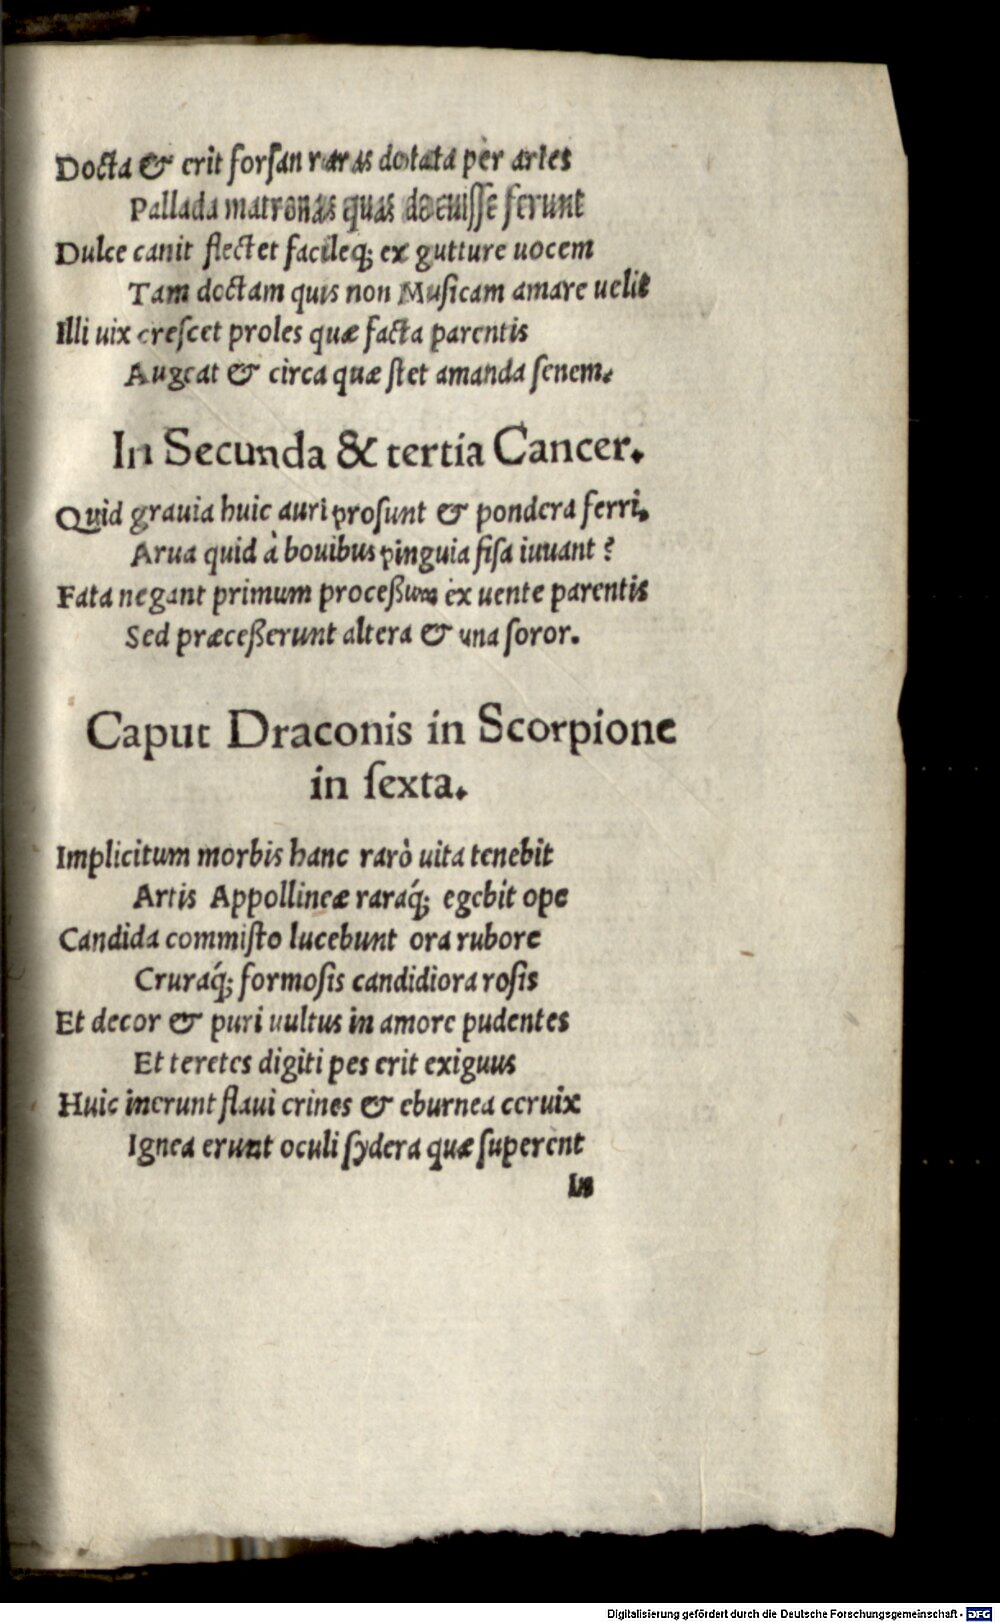 Docta & erit forſan raras dotata per artes
Pallada matronas quas docuiſſe ferunt
Dulce canit flectet facileq; ex gutture uocem
Tam doctam quis non Muſicam amare uelit
Illi uix creſcet proles quæ facta parentis
Augeat & circa quæ ſtet amanda ſenem.
In Secunda & tertia Cancer.
Quid grauia huic auri proſunt & pondera ferri,
Arua quid à bouibus pinguia fiſa iuuant?
Fata negant primum proceßum ex uente parentis
Sed præceßerunt altera & una ſoror.
Caput Draconis in Scorpione
in ſexta.
Implicitum morbis hanc rarò uita tenebit
Artis Appollineæ raraq́; egebit ope
Candida commiſto lucebunt ora rubore
Cruraq́; formoſis candidiora roſis
Et decor & puri uultus in amore pudentes
Et teretes digiti pes erit exiguus
Huic inerunt flaui crines & eburnea ceruix
Ignea erunt oculi ſydera quæ ſuperent
In
Digitalisierung gefördert durch die Deutsche Forschungsgemeinschaft - DFG